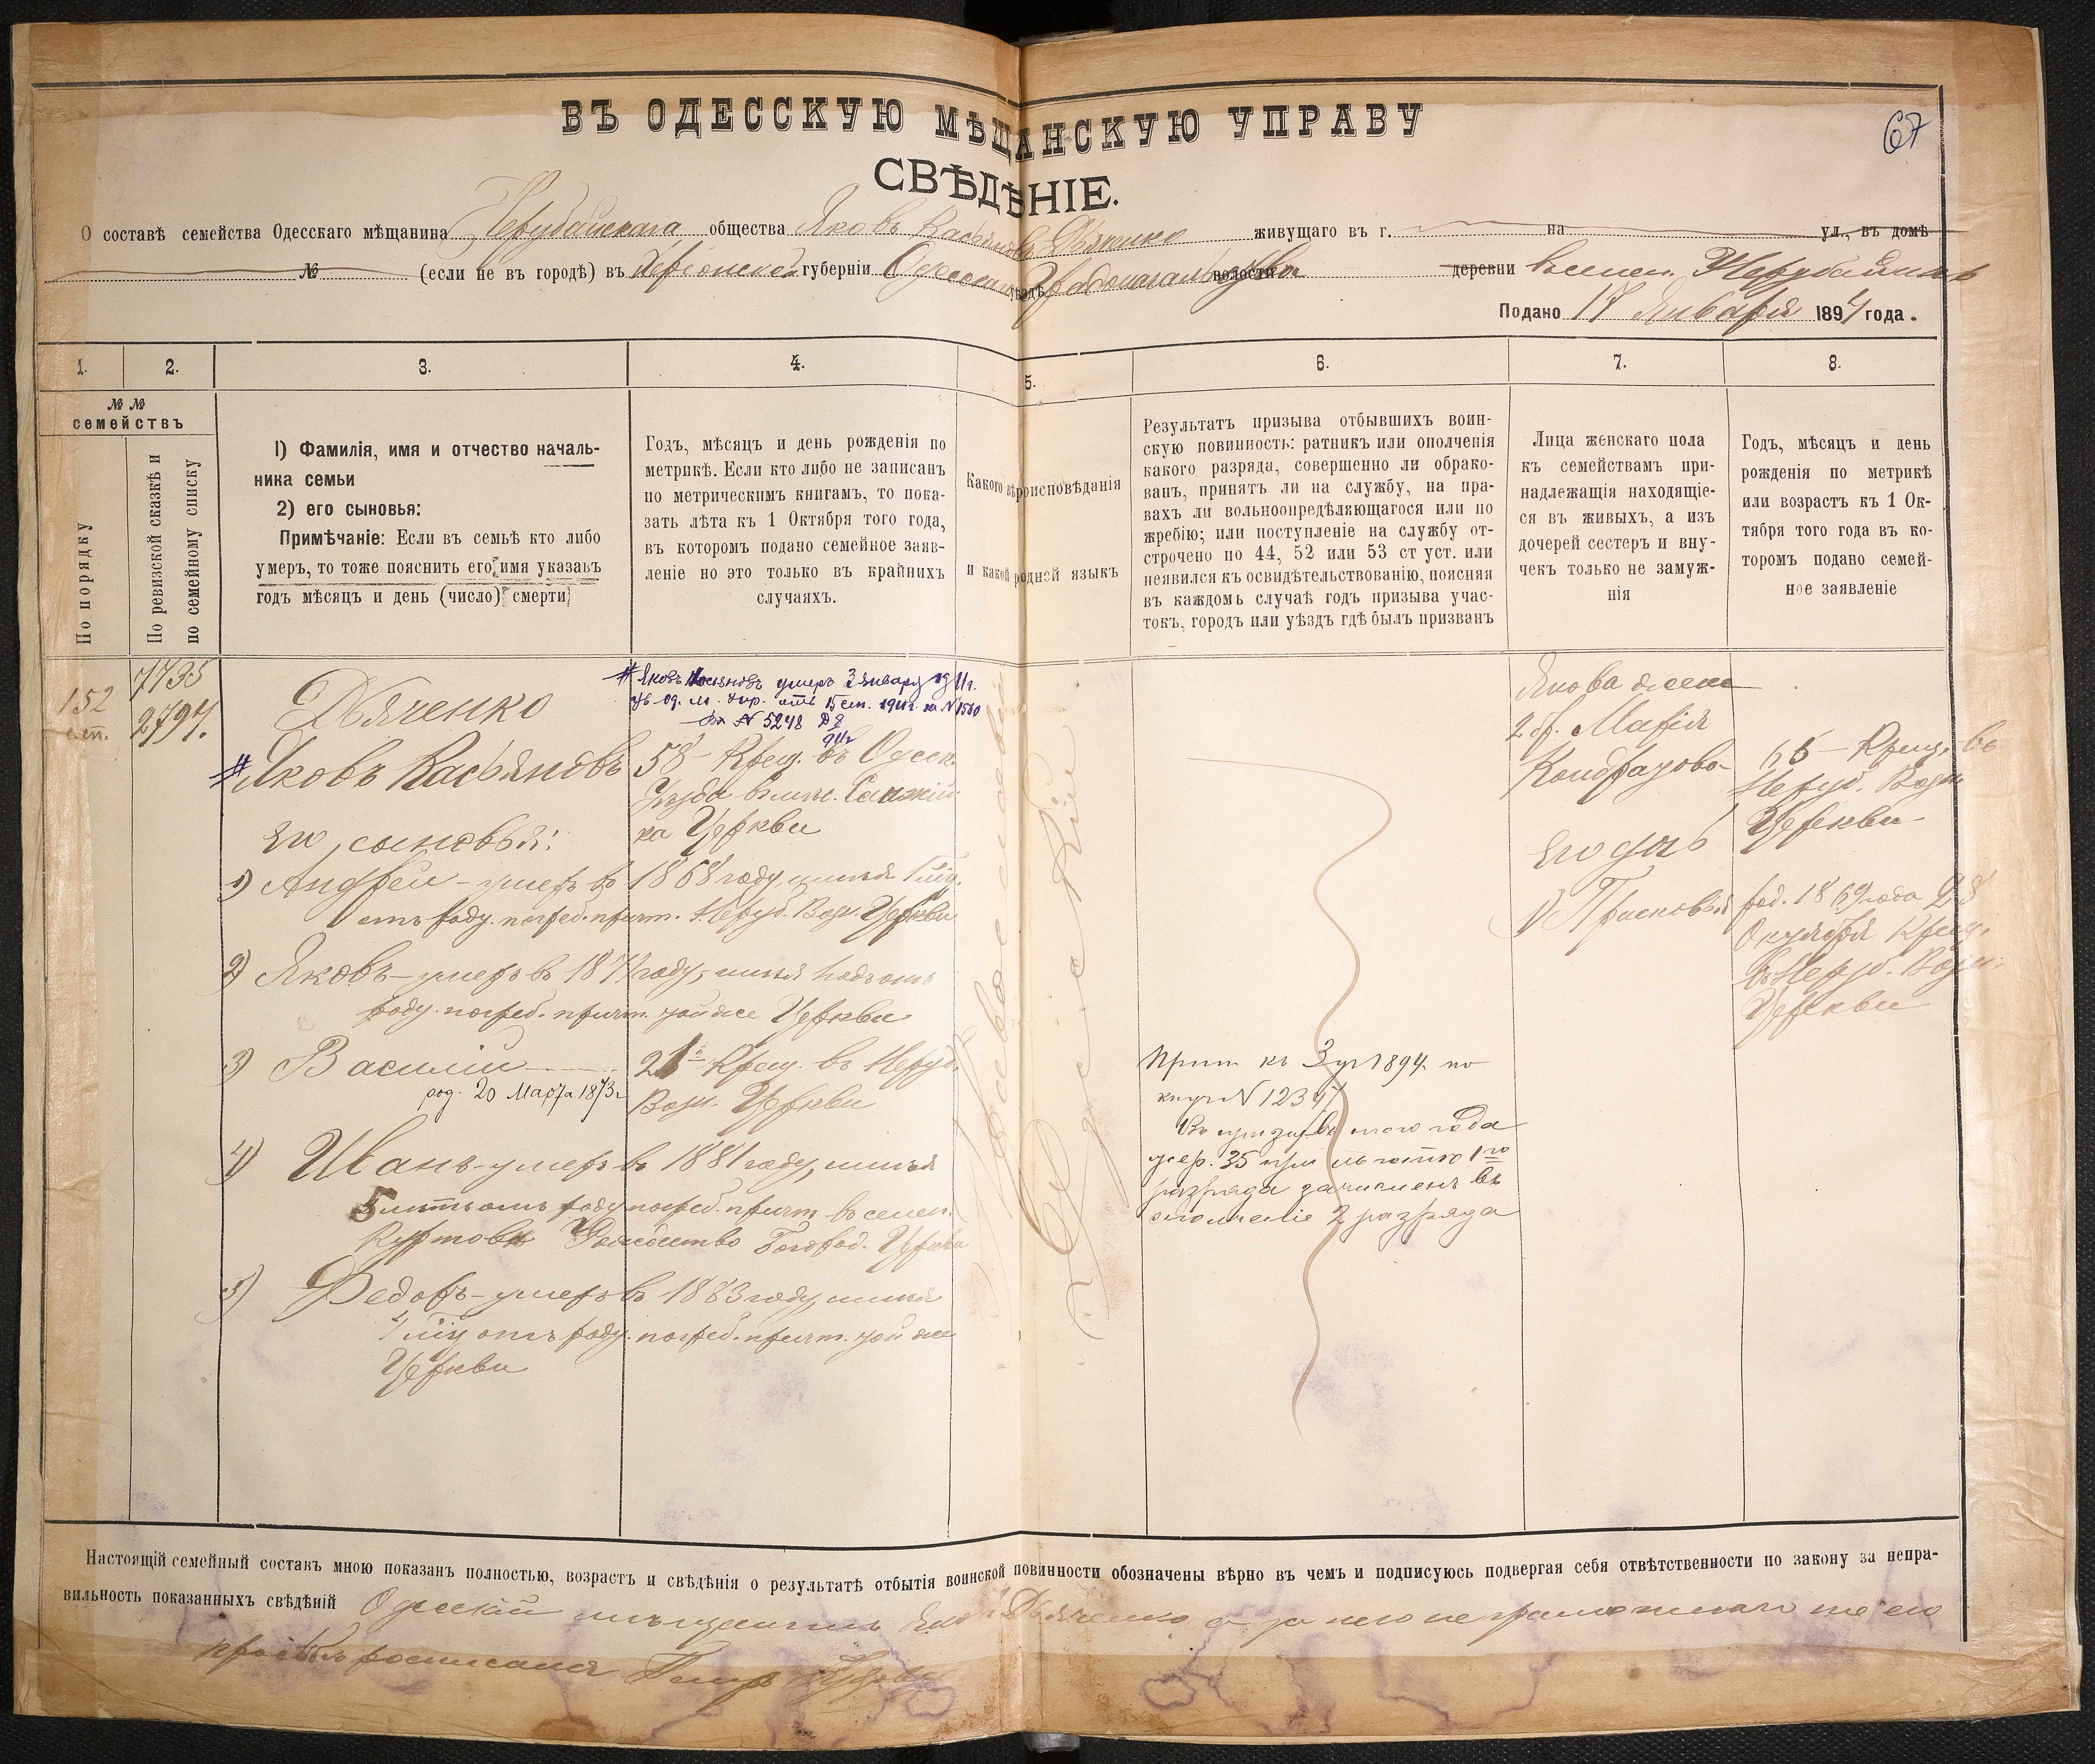 67
ВЪ ОДЕССКУЮ МѢЩАНСКУЮ УПРАВУ
СВѢДѢНІЕ.
О составѣ семейства Одесскаго мѣщанина Нерубайскаго общества Яковъ Касьяновъ Дьяченко живущаго въ г. на ул., въ домѣ
№ (если не въ городѣ) въ Херсонской губерніи Одесскаго уѣзда волости деревни въ селен. Нерубайскихъ
Подано 17 Января 1894 года.
1. 2. 3. 4. 5. 6. 7. 8.
№№ семействъ
По порядку
По ревизской сказкѣ и по семейному списку
1) Фамилія, имя и отчество началь-
ника семьи
2) его сыновья:
Примѣчаніе: Если въ семьѣ кто либо
умеръ, то тоже пояснить его имя указавъ
годъ мѣсяцъ и день (число) смерти
Годъ, мѣсяцъ и день рожденія по
метрикѣ. Если кто либо не записанъ
по метрическимъ книгамъ, то пока-
зать лѣта къ 1 Октября того года,
въ которомъ подано семейное заяв-
леніе но это только въ крайнихъ
случаяхъ.
Какого вѣроисповѣданія
и какой родной языкъ
Результатъ призыва отбывшихъ воин-
скую повинность: ратникъ или ополченія
какого разряда, совершенно ли обрако-
ванъ, принятъ ли на службу, на пра-
вахъ ли вольноопредѣляющагося или по
жребію; или поступленіе на службу от-
строчено по 44, 52 или 53 ст уст. или
неявился къ освидѣтельствованію, поясняя
въ каждомъ случаѣ годъ призыва учас-
токъ, городъ или уѣздъ гдѣ былъ призванъ
Лица женскаго пола
къ семействамъ при-
надлежащія находящіе-
ся въ живыхъ, а изъ
дочерей сестеръ и вну-
чекъ только не замуж-
нія
Годъ, мѣсяцъ и день
рожденія по метрикѣ
или возрастъ къ 1 Ок-
тября того года въ ко-
торомъ подано семей-
ное заявленіе
152
7735
2794.
Дьяченко
# Яковъ Касьяновъ умеръ 3 Января 1911г.
№ 5248
# Яковъ Касьяновъ
58 - Крещ. въ Одесск.
Уѣзда
ка Церкви
его сыновья:
1) Андрей - умеръ въ 1868 году, имѣя
отъ роду. погреб. причт. Неруб. Возн. Церкви
2) Яковъ - умеръ въ 1871 году, имѣя отъ
роду. погреб. причт. той же Церкви
3) Василій
род. 20 Марта 1873 г
21 Крещ. въ Неруб.
Возн. Церкви
4) Иванъ - умеръ въ 1881 году, имѣя
5 лѣтъ отъ роду погреб. причт. въ селен.
Рождество Богород. Церкви
5) Федоръ - умеръ въ 1883 году, имѣя
отъ роду. погреб. причт. той же
Церкви
Православнаго
Русскій
Прип къ 3 уч 1894 г. по
№ 1234
Въ призывѣ того года
жер. 35 при льготѣ 1го
разряда зачисленъ въ
ополченіе 2 разряда
Якова жена
2 бр. Марія
Кондратова
65 - Крещ. въ
Неруб. Возн.
Церкви
его дочь
1) Прасковья
род. 1869 года 28
Октября Крещ.
въ Неруб. Возн.
Церкви
Настоящій семейный составъ мною показанъ полностью, возрастъ и свѣдѣнія о результатѣ отбытія воинской повинности обозначены вѣрно въ чемъ и подписуюсь подвергая себя отвѣтственности по закону за непра-
вильность показанныхъ свѣдѣній Одесскій мѣщанинъ Дьяченко а за него неграмотнаго по его
просьбѣ росписался Петръ